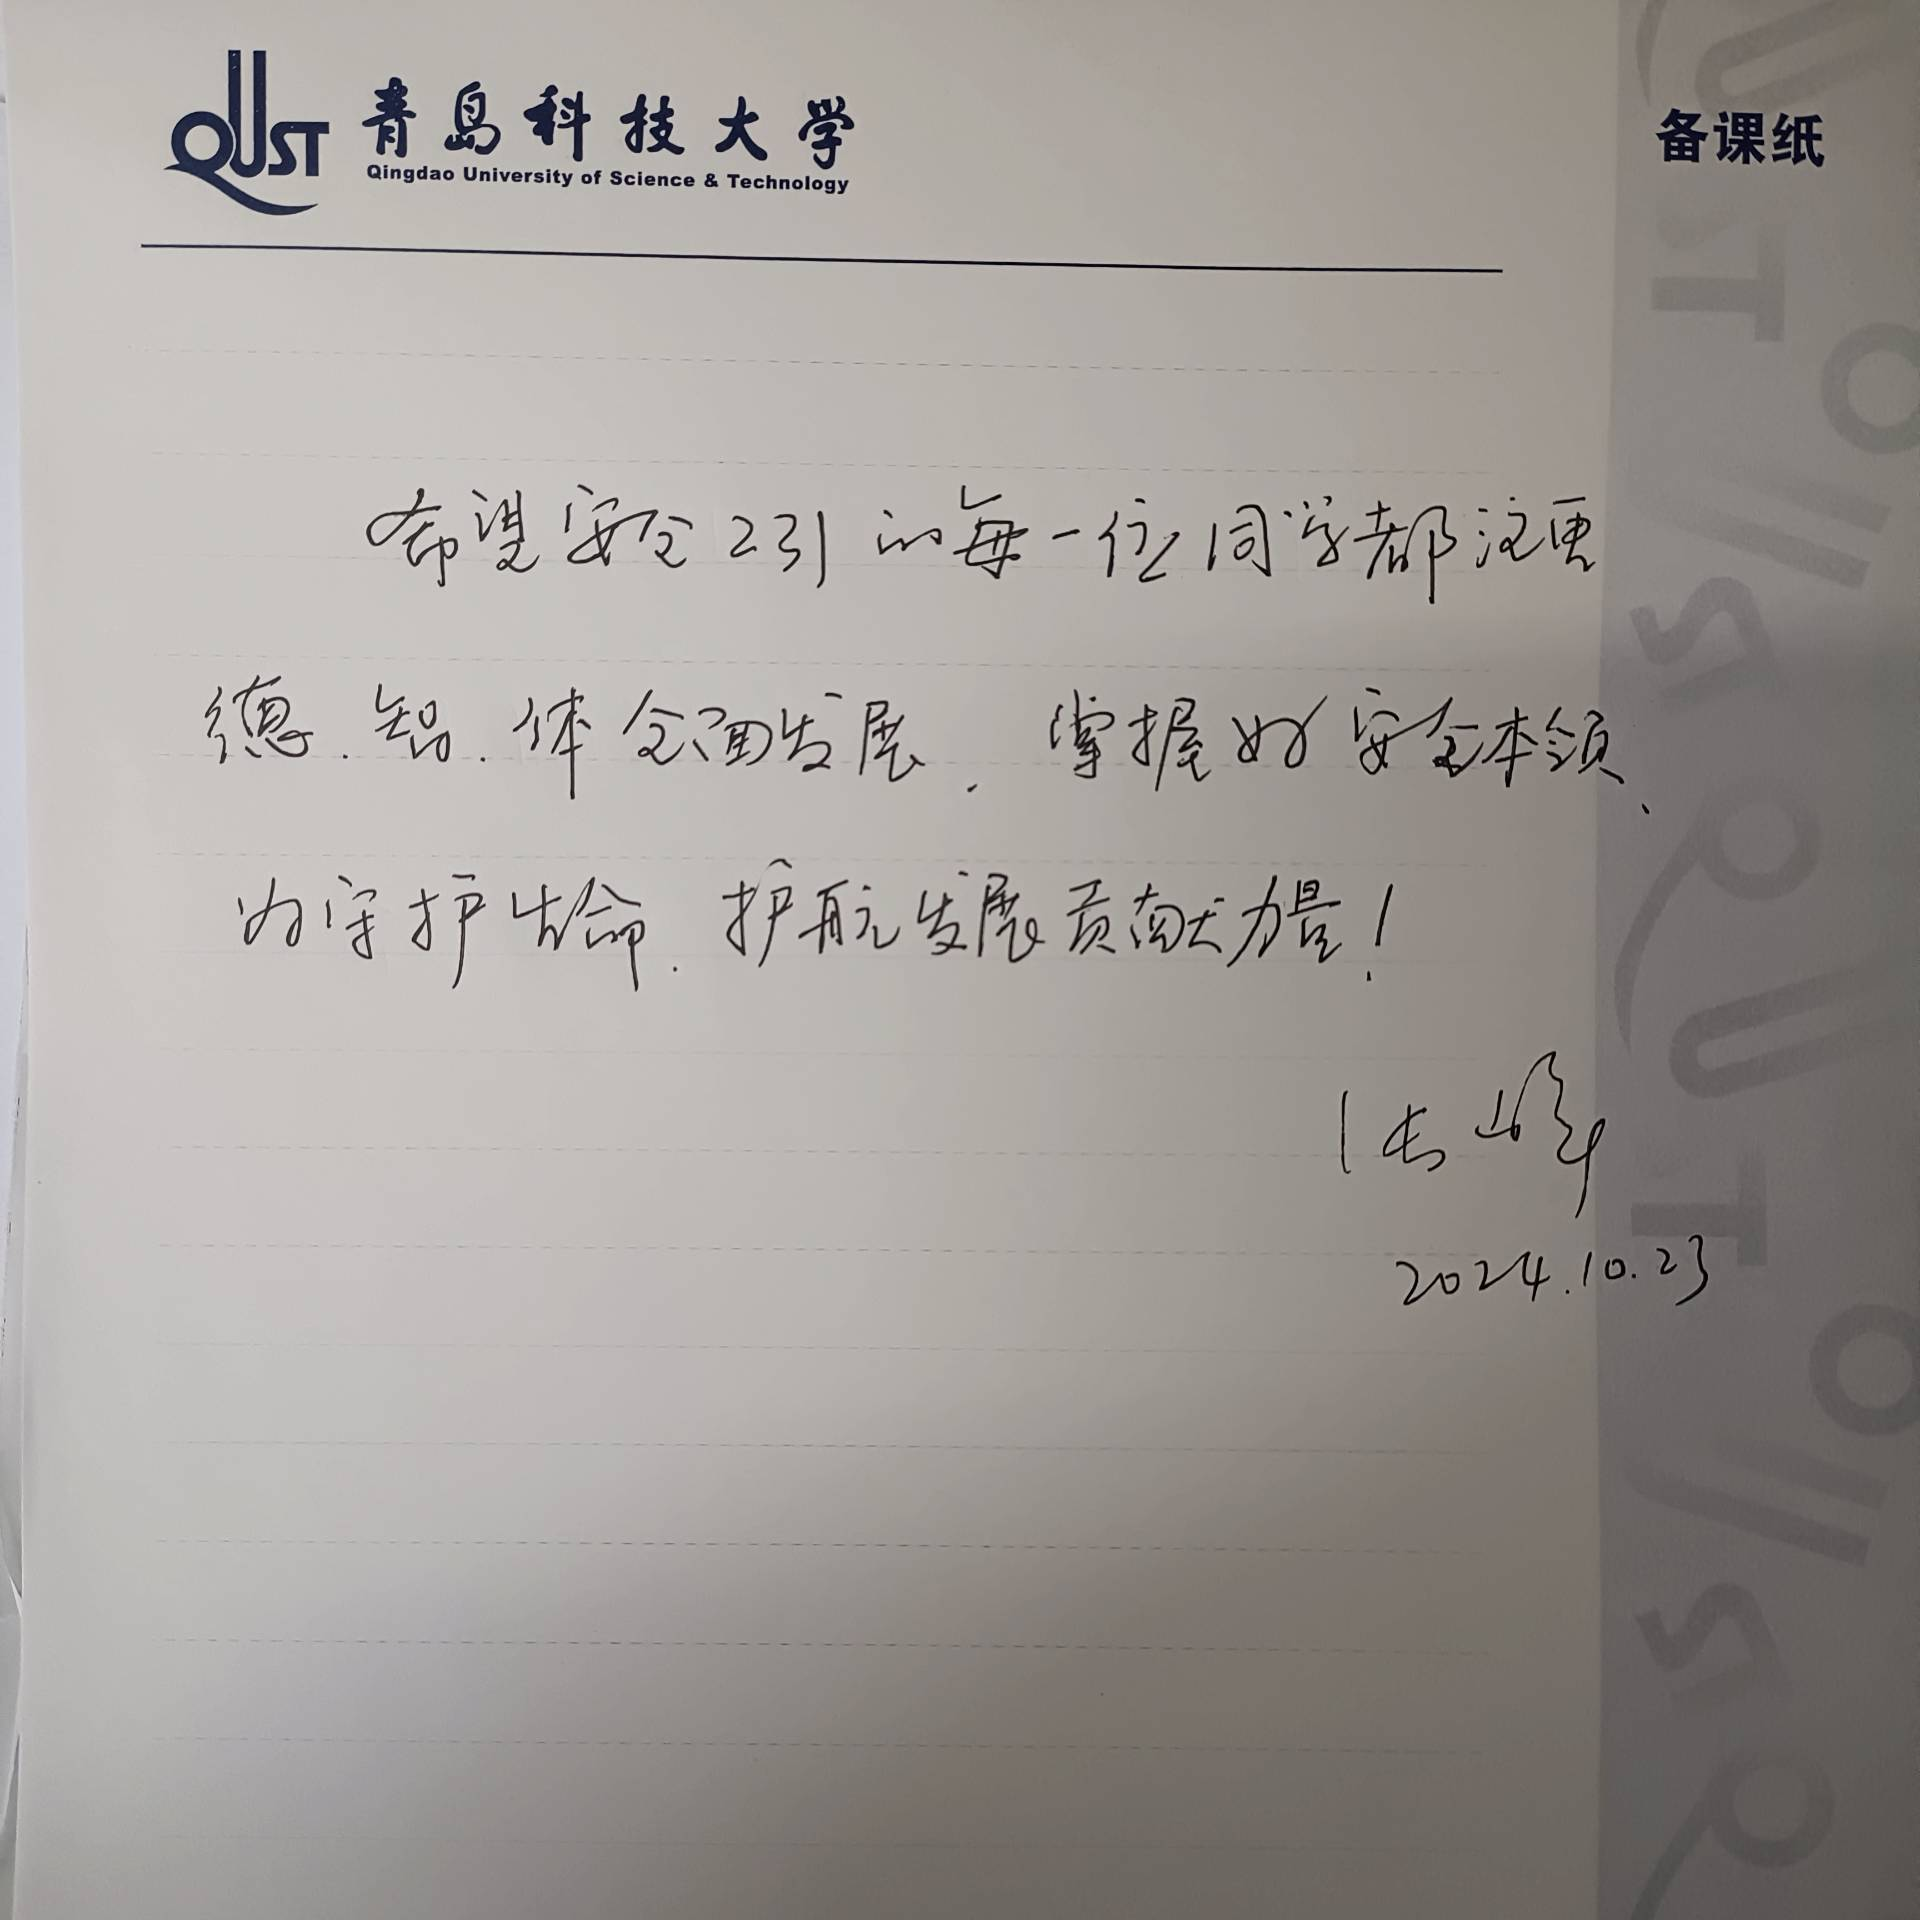 QUST 青岛科技大学
Qingdao University of Science & Technology
备课纸
希望安全231的每一位同学都注重
德、智、体全面发展，掌握好安全本领、
为守护生命、护航发展贡献力量！
张峰
2024.10.23